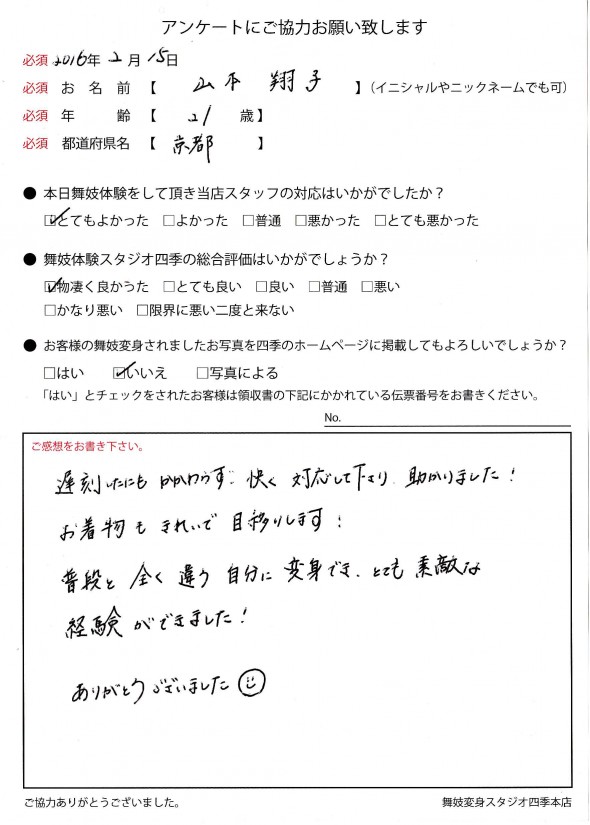 アンケートにご協力お願い致します
必須 2016年 2月 15日
必須 お名前 【 山本 翔子 】（イニシャルやニックネームでも可）
必須 年齢 【 21 歳】
必須 都道府県名 【 京都 】
● 本日舞妓体験をして頂き当店スタッフの対応はいかがでしたか？
☑とてもよかった □よかった □普通 □悪かった □とても悪かった
● 舞妓体験スタジオ四季の総合評価はいかがでしょうか？
☑物凄く良かった □とても良い □良い □普通 □悪い
□かなり悪い □限界に悪い二度と来ない
● お客様の舞妓変身されましたお写真を四季のホームページに掲載してもよろしいでしょうか？
□はい ☑いいえ □写真による
「はい」とチェックをされたお客様は領収書の下記にかかれている伝票番号をお書きください。
No.
ご感想をお書き下さい。
遅刻したにもかかわらず、快く対応して下さり、助かりました！
お着物もきれいで目移りします！
普段と全く違う自分に変身でき、とても素敵な
経験ができました！
ありがとうございました☺
ご協力ありがとうございました。
舞妓変身スタジオ四季本店